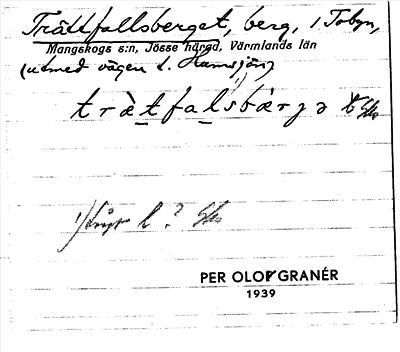 Trättfallsberget, berg, i Tobyn,
Mangskogs s:n, Jösse härad, Värmlands län
(utmed vägen t. Hamsjön)
trȁtfalsbærgə
1) l ?
PER OLOF GRANÉR
1939